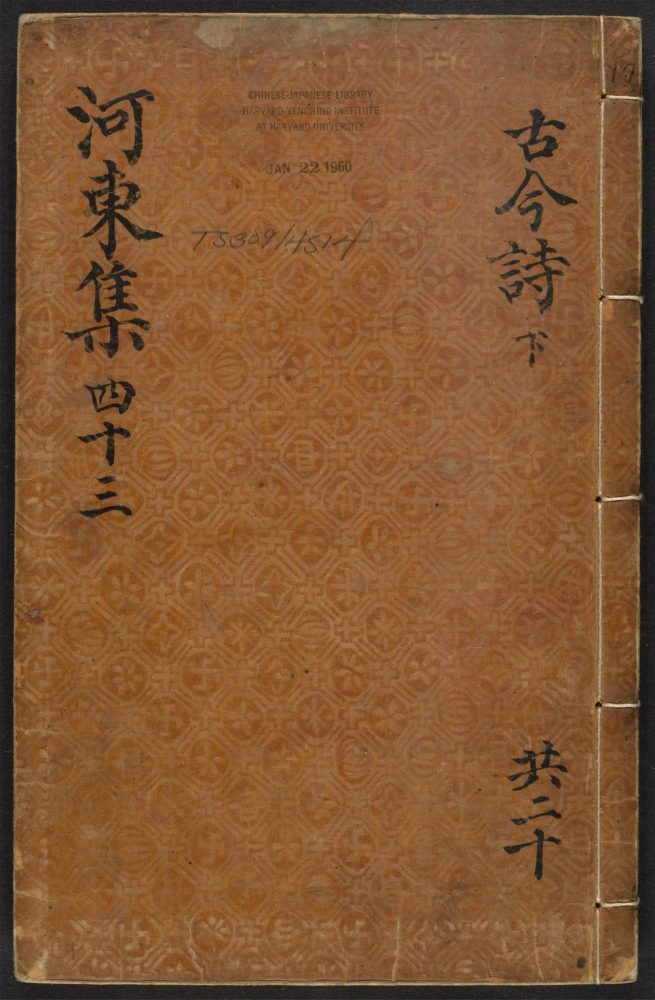 19
古今詩下
共二十
CHINESE-JAPANESE LIBRARY
HARVARD-YENCHING INSTITUTE
AT HARVARD UNIVERSITY
JAN 22 1960
TS309/4514
河東集四十三